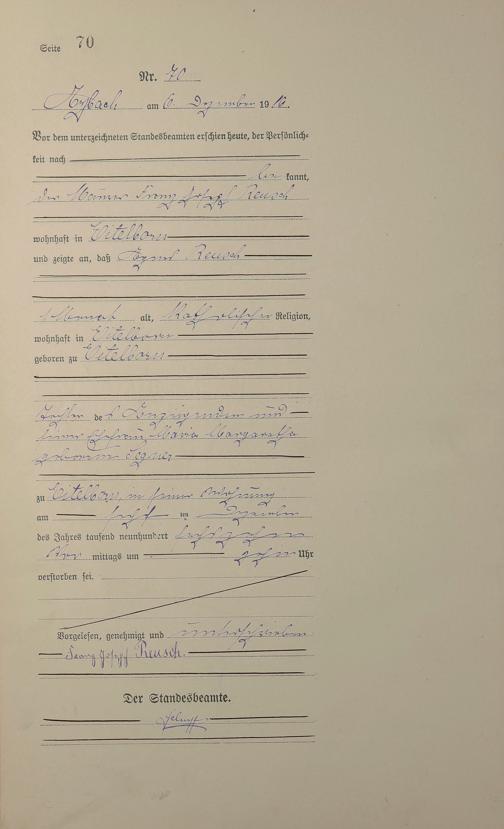 Seite 70
Nr. 70
am 6 Dezember 1916.
Vor dem unterzeichneten Standesbeamten erschien heute, der Persönlich-
keit nach
be kannt,
der Franz Josef Reusch
wohnhaft in Eitelborn
und zeigte an, daß Reusch
1 Monat alt, katholischer Religion,
wohnhaft in Eitelborn
geboren zu Eitelborn
Tochter de s Anzeigenden und
seiner Ehefrau Maria Margaretha
geborenen
zu Eitelborn, in seiner Wohnung
am sechs ten Dezember
des Jahres tausend neunhundert sechszehn
Vor mittags um zehn Uhr
verstorben sei.
Vorgelesen, genehmigt und unterschrieben
Josef Reusch.
Der Standesbeamte.